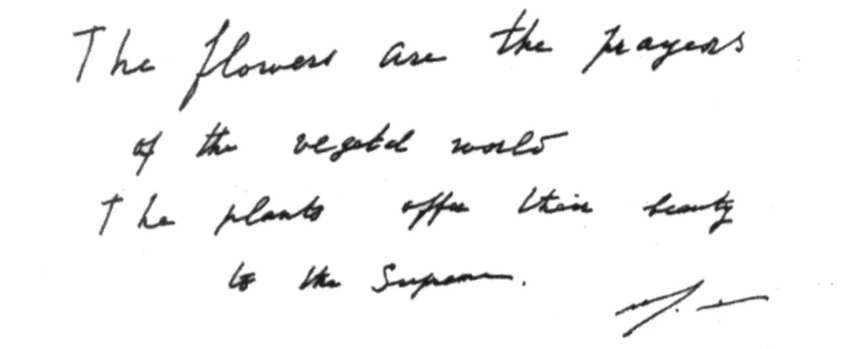 The flowers are the prayers
of the vegetal world
The plants offer their beauty
to the Supreme.